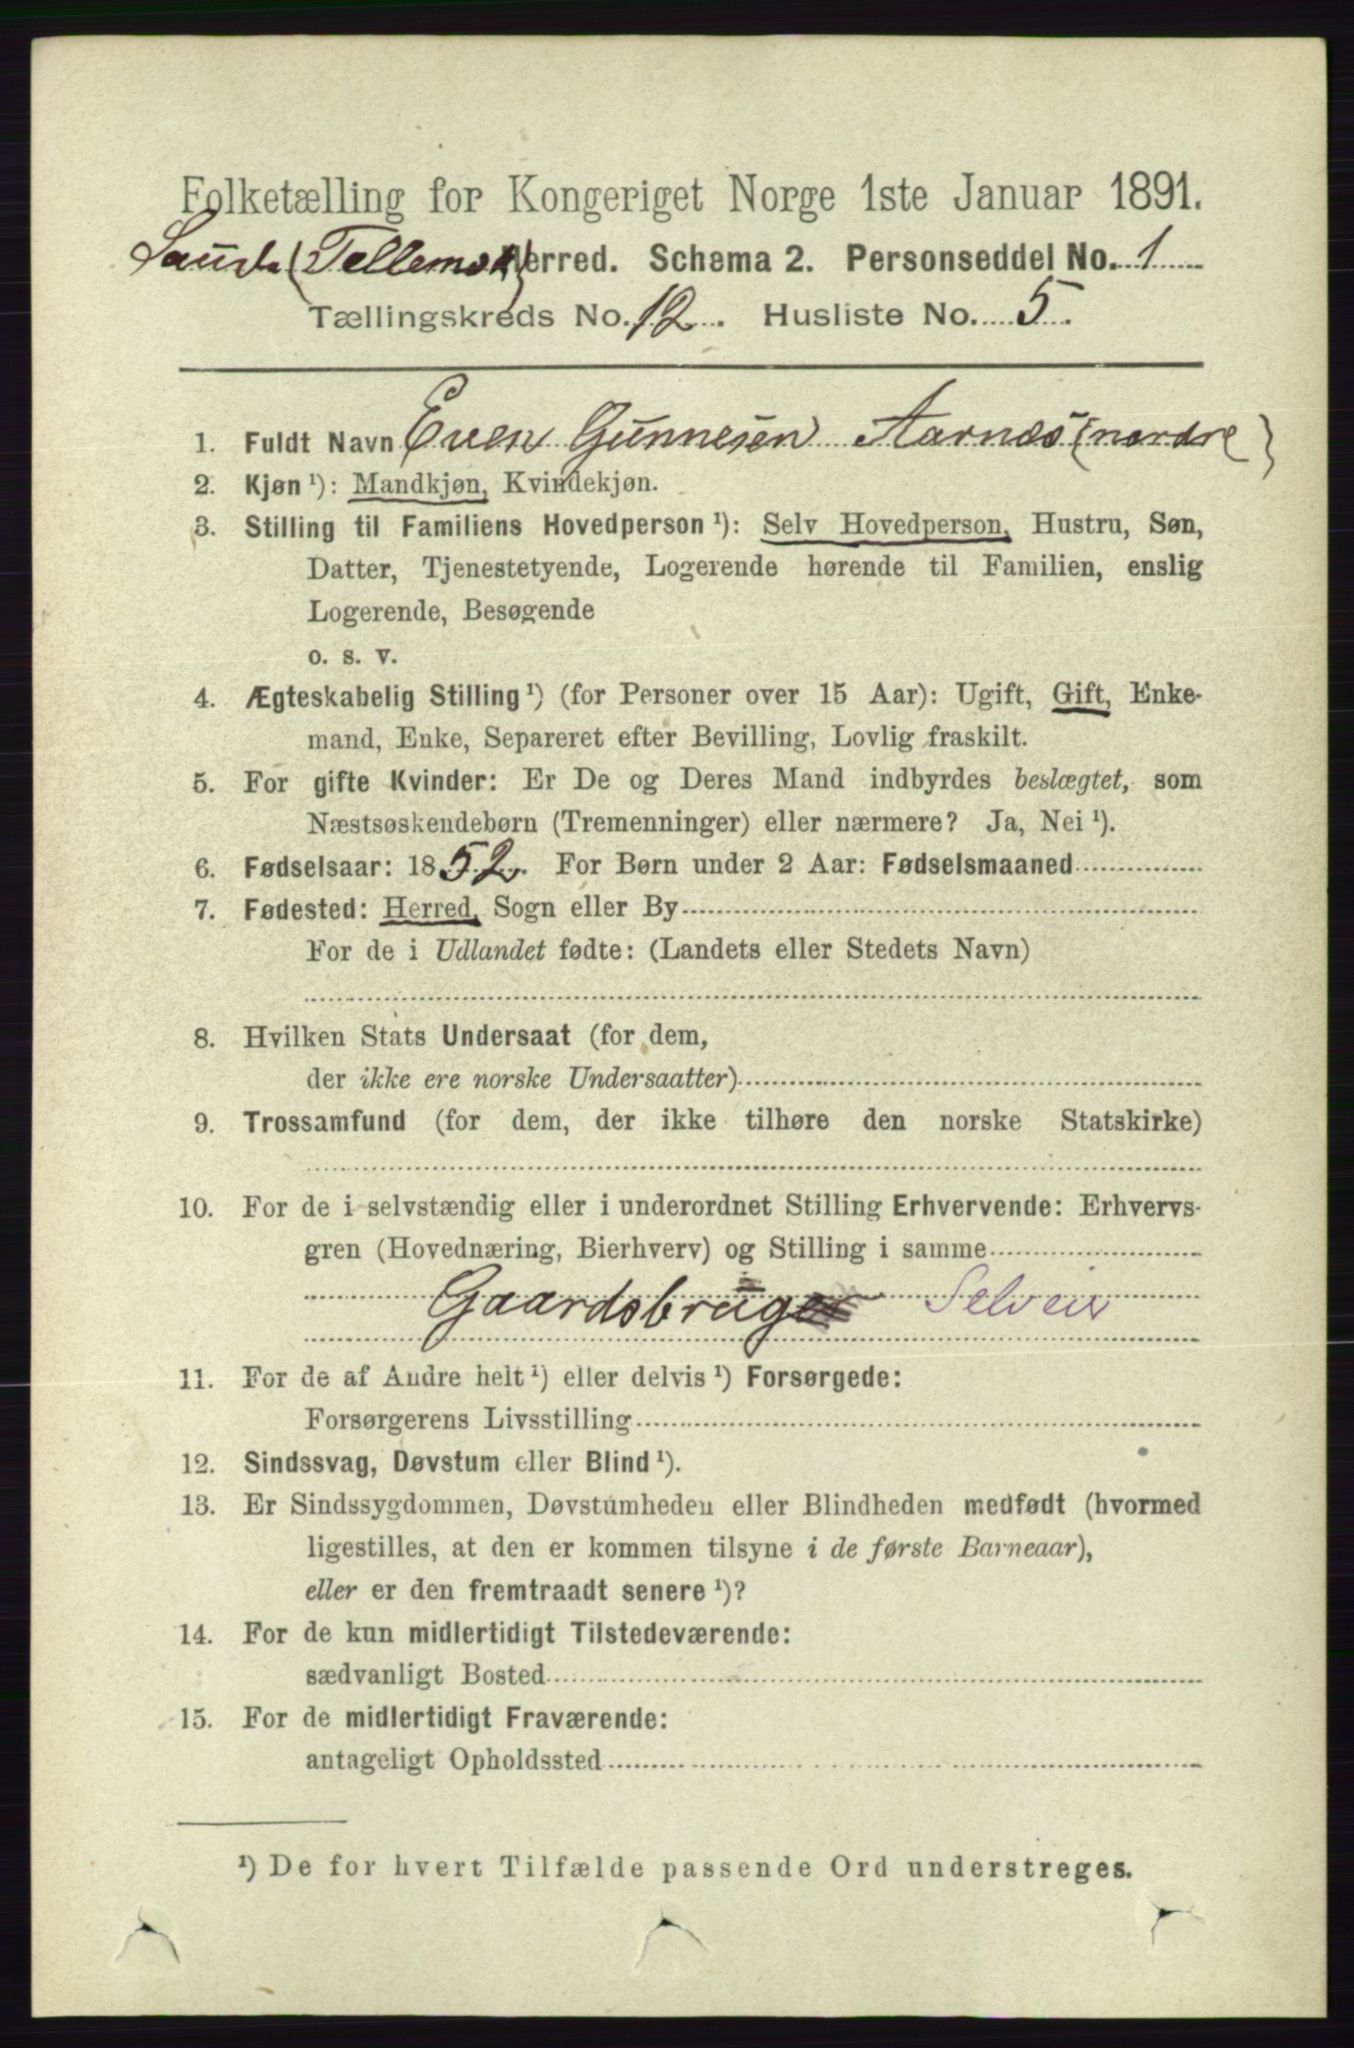 Folketælling for Kongeriget Norge 1ste Januar 1891.
Saude (Tellemark) Herred. Schema 2. Personseddel No. 1
Tællingskreds No. 12. Husliste No. 5.
1. Fuldt Navn Even Gunnesen Aarnes (nordre)
2. Kjøn ¹): Mandkjøn, Kvindekjøn.
3. Stilling til Familiens Hovedperson ¹): Selv Hovedperson, Hustru, Søn,
Datter, Tjenestetyende, Logerende hørende til Familien, enslig
Logerende, Besøgende
o. s. v.
4. Ægteskabelig Stilling ¹) (for Personer over 15 Aar): Ugift, Gift, Enke-
mand, Enke, Separeret efter Bevilling, Lovlig fraskilt.
5. For gifte Kvinder: Er De og Deres Mand indbyrdes beslægtet, som
Næstsøskendebørn (Tremenninger) eller nærmere? Ja, Nei ¹).
6. Fødselsaar: 1852. For Børn under 2 Aar: Fødselsmaaned
7. Fødested: Herred, Sogn eller By
For de i Udlandet fødte: (Landets eller Stedets Navn)
8. Hvilken Stats Undersaat (for dem,
der ikke ere norske Undersaatter)
9. Trossamfund (for dem, der ikke tilhøre den norske Statskirke)
10. For de i selvstændig eller i underordnet Stilling Erhvervende: Erhvervs-
gren (Hovednæring, Bierhverv) og Stilling i samme
Gaardsbruger Selveier
11. For de af Andre helt ¹) eller delvis ¹) Forsørgede:
Forsørgerens Livsstilling
12. Sindssvag, Døvstum eller Blind ¹).
13. Er Sindssygdommen, Døvstumheden eller Blindheden medfødt (hvormed
ligestilles, at den er kommen tilsyne i de første Barneaar),
eller er den fremtraadt senere ¹)?
14. For de kun midlertidigt Tilstedeværende:
sædvanligt Bosted
15. For de midlertidigt Fraværende:
antageligt Opholdssted
¹) De for hvert Tilfælde passende Ord understreges.